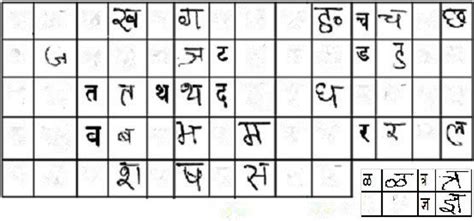 ख ग ह च च छ
ज ज ट ड ड
त त थ थ द ध
ब ब भ म र र ल
श ष स
ळ ळ त्र त्र
ज्ञ ज्ञ